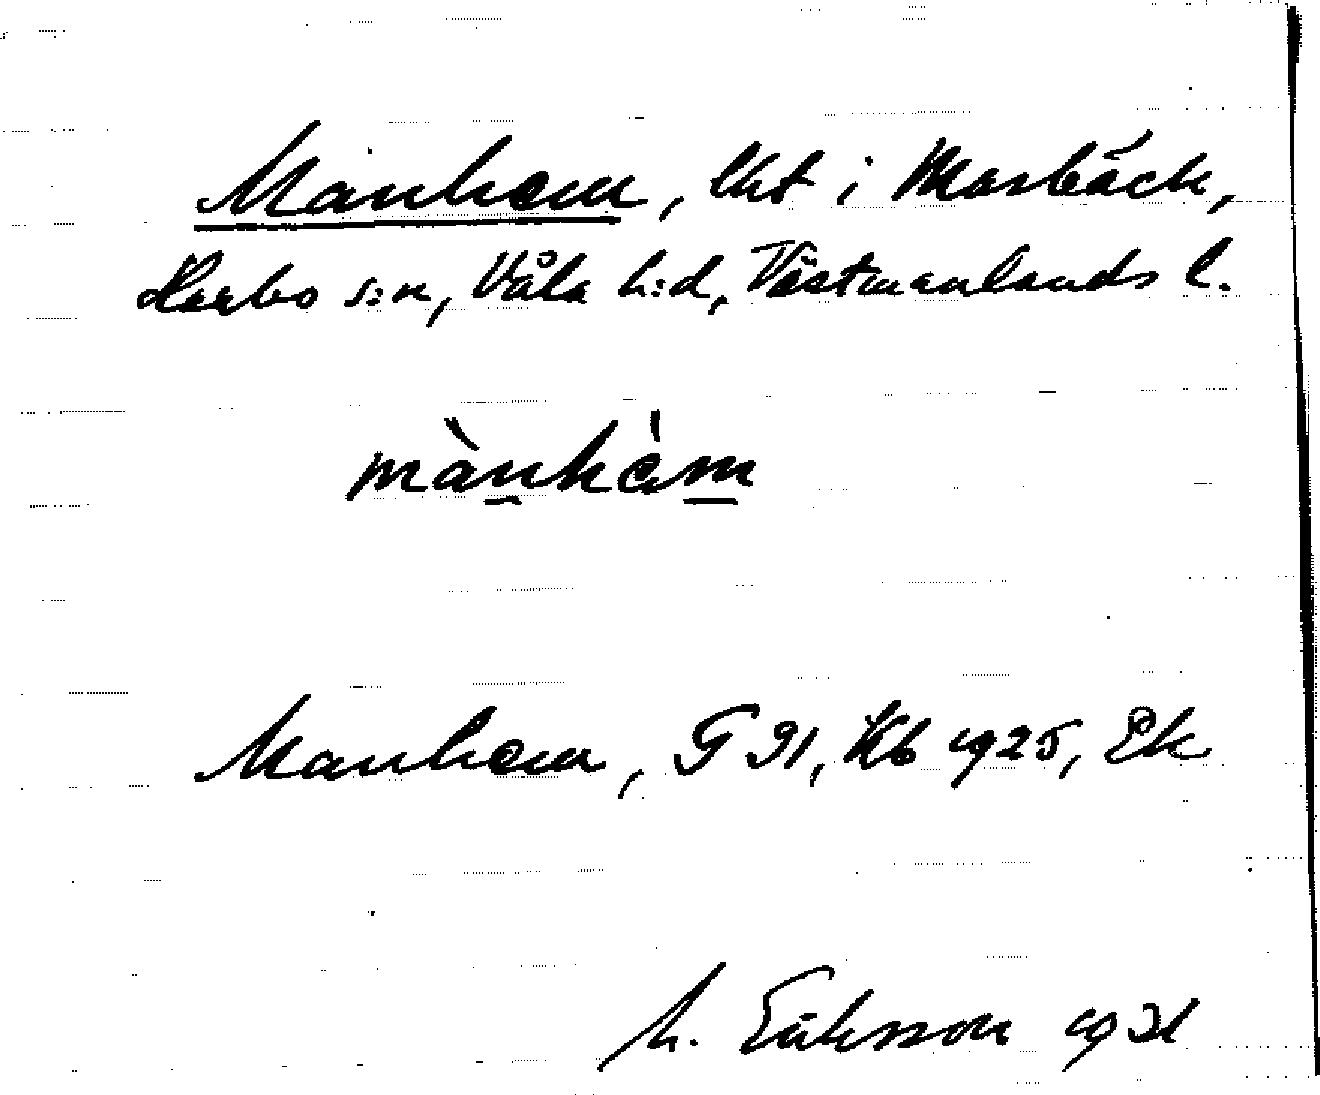 Manhem, lht i Morbäck,
Harbo s:n, Våla h:d, Västmanlands l.
mànhèm
Manhem, G 91, Kb 1925, Ek
M. Eriksson 1931